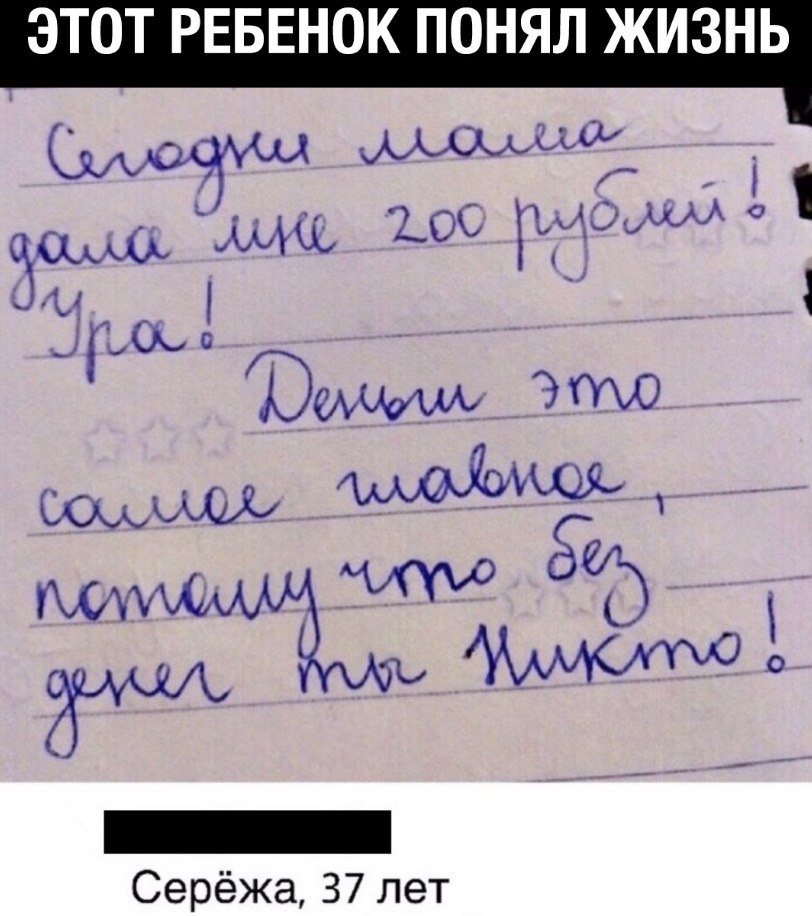 ЭТОТ РЕБЕНОК ПОНЯЛ ЖИЗНЬ
Сегодня мама
дала мне 200 рублей!
Ура!
Деньги это
самое главное,
потому что без
денег ты Никто!
Серёжа, 37 лет